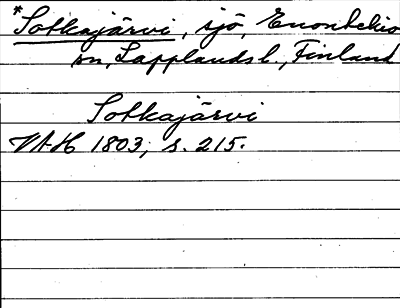 *Sotkajärvi, sjö, Enontekis
sn, Lapplands l., Finland
Sotkajärvi
VAH 1803, s. 215.